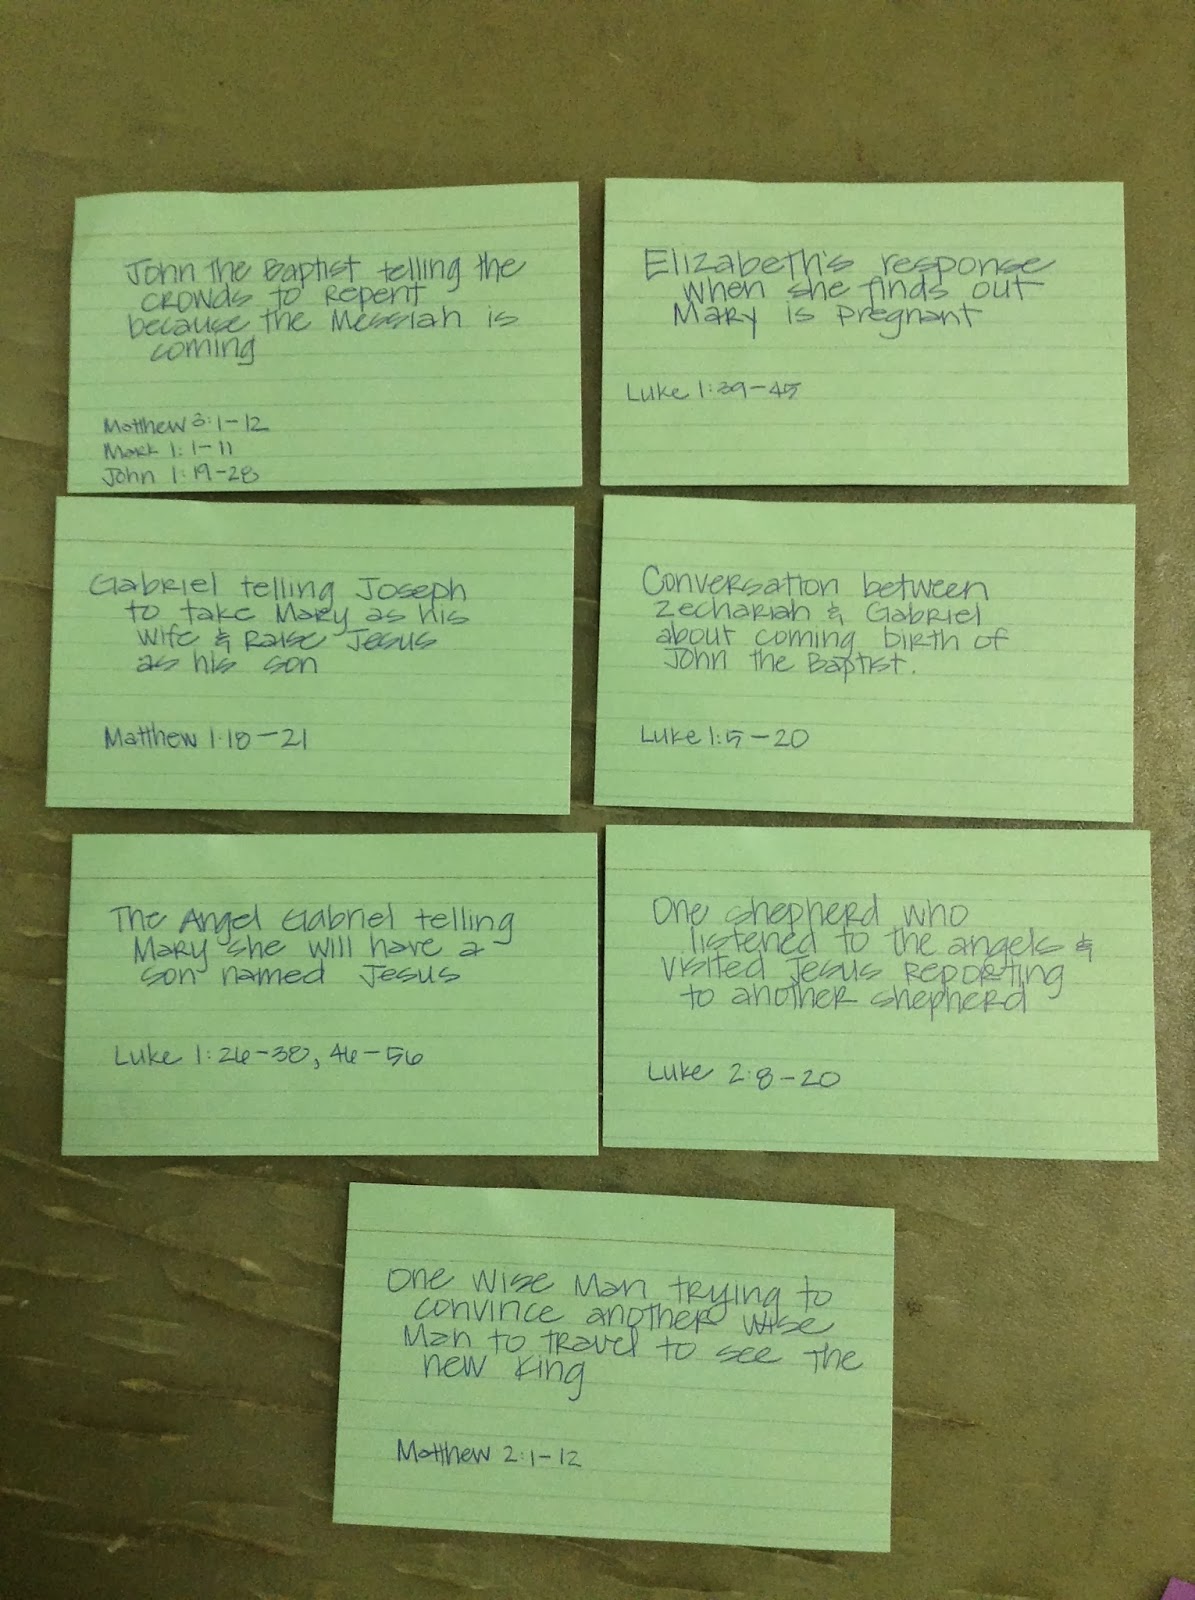 John the Baptist telling the
crowds to repent
because the Messiah is
coming
Matthew 3:1-12
Mark 1:1-11
John 1:19-28
Elizabeth's response
when she finds out
Mary is pregnant
Luke 1:39-45
Gabriel telling Joseph
to take Mary as his
wife & raise Jesus
as his son
Matthew 1:18-21
Conversation between
Zechariah & Gabriel
about coming birth of
John the Baptist.
Luke 1:5-20
The Angel Gabriel telling
Mary she will have a
son named Jesus
Luke 1:26-38, 46-56
One shepherd who
listened to the angels &
visited Jesus reporting
to another shepherd
Luke 2:8-20
One Wise Man trying to
convince another Wise
Man to travel to see the
new king
Matthew 2:1-12